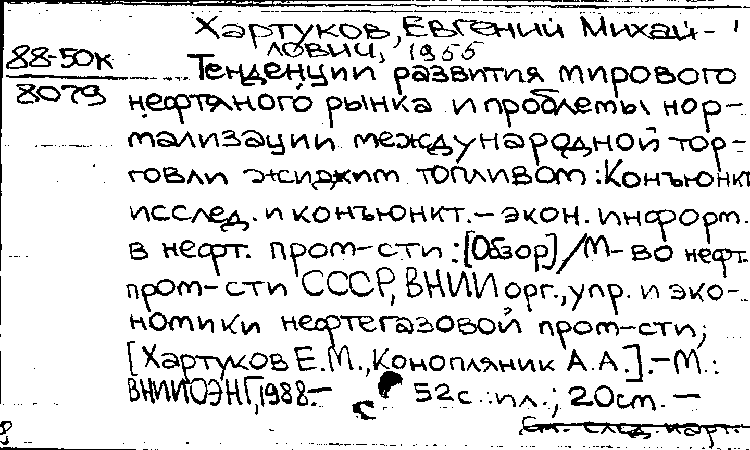 Хартуков, Евгений Михай-
лович, 1955
88-50к
8079
Тенденции развития мирового
нефтяного рынка и проблемы нор-
мализации международной тор-
говли жидким топливом: Конъюнкт.
исслед. и конъюнкт.-экон. информ.
в нефт. пром-сти: [Обзор] / М-во нефт.
пром-сти СССР, ВНИИ орг., упр. и эко-
номики нефтегазовой пром-сти;
[Хартуков Е.М., Конопляник А.А.].-М.:
ВНИИОЭНГ, 1988.-
52с.:ил.; 20см.-
См. след. карт.